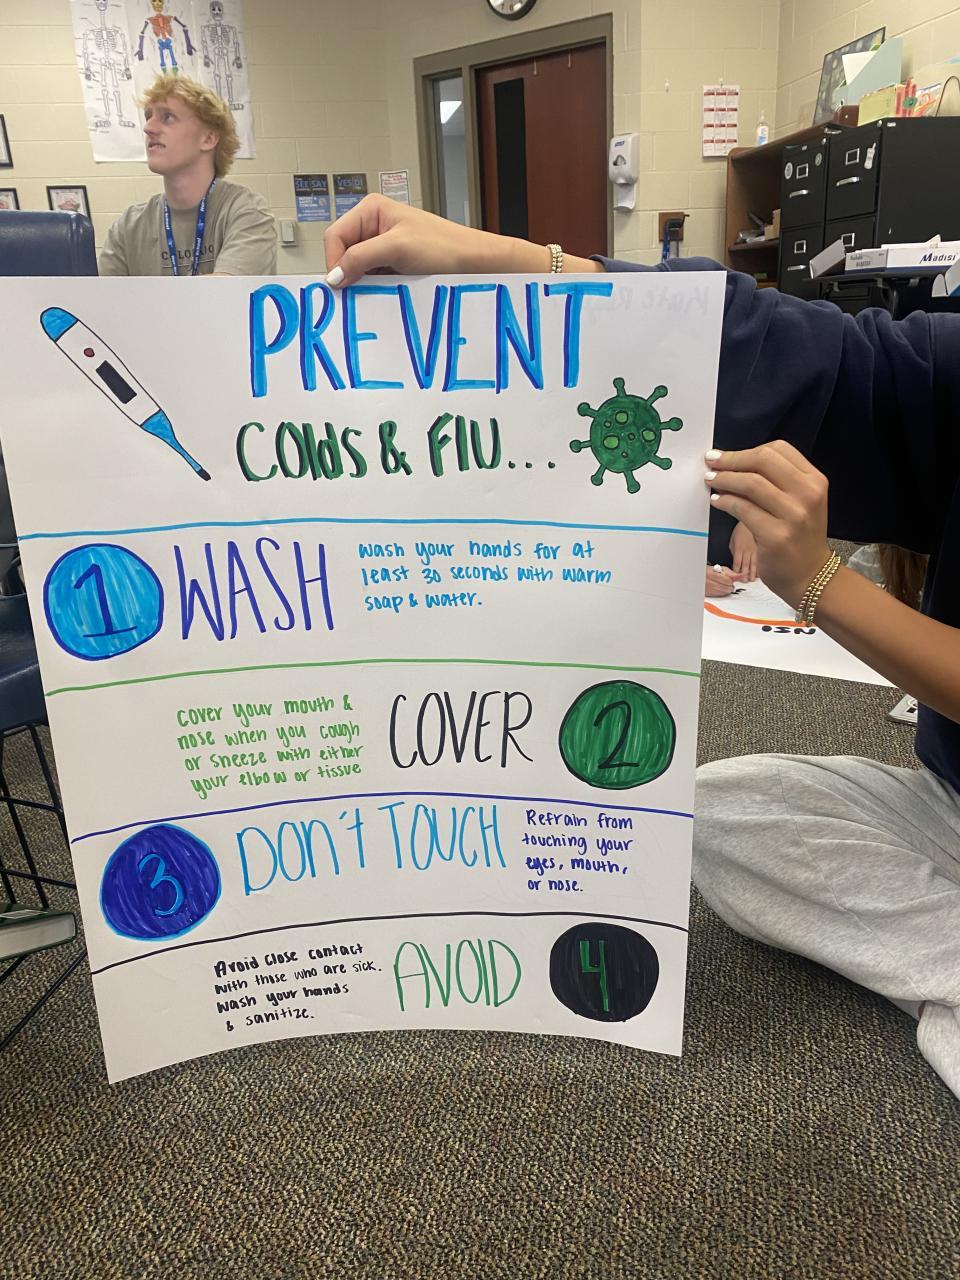 SEE SAY
YES DI
COLORADO
PREVENT
Colds & Flu...
1 WASH
wash your hands for at
least 30 seconds with warm
soap & water.
cover your mouth &
nose when you cough
or sneeze with either
your elbow or tissue
COVER 2
3 DON'T TOUCH
Refrain from
touching your
eyes, mouth,
or nose.
Avoid close contact
with those who are sick.
wash your hands
& sanitize.
AVOID 4